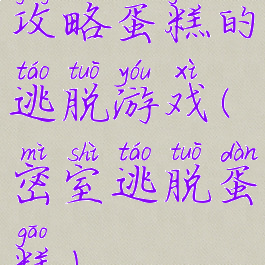 攻略蛋糕的
táo tuō yóu xì
逃脱游戏(
mì shì táo tuō dàn
密室逃脱蛋
gāo
糕)